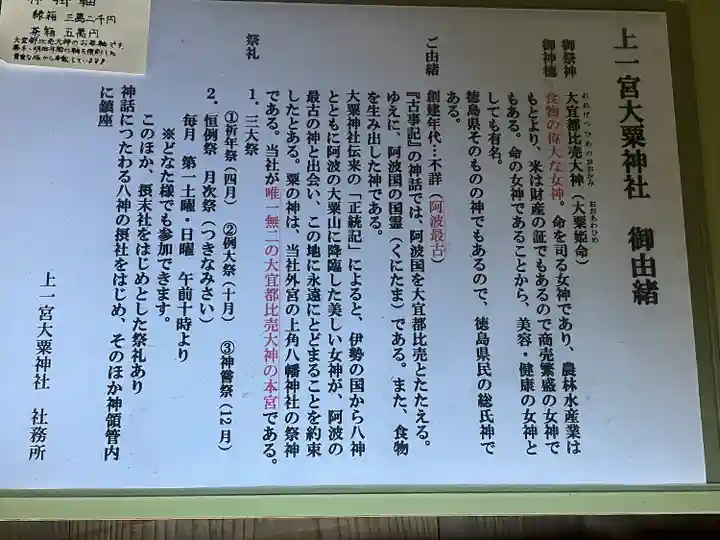 上一宮大粟神社　御由緒
御祭神　大宜都比売大神（大粟姫命）
御神徳　食物の偉大な女神。命を司る女神であり、農林水産業は
もとより、米は財産の証でもあるので商売繁盛の女神で
もある。命の女神であることから、美容・健康の女神と
しても有名。
徳島県そのものの神でもあるので、徳島県民の総氏神で
ある。
ご由緒　創建年代：不詳（阿波最古）
『古事記』の神話では、阿波国を大宜都比売とたたえる。
ゆえに、阿波国の国霊（くにたま）である。また、食物
を生み出した神である。
大粟神社伝来の「正統記」によると、伊勢の国から八神
とともに阿波の大粟山に降臨した美しい女神が、阿波の
最古の神と出会い、この地に永遠にとどまることを約束
したとある。粟の神は、当社外宮の上角八幡神社の祭神
である。当社が唯一無二の大宜都比売大神の本宮である。
祭礼　1．三大祭
①祈年祭（四月）　②例大祭（十月）　③神嘗祭（12月）
2．恒例祭　月次祭（つきなみさい）
毎月　第一土曜・日曜　午前十時より
※どなた様でも参加できます。
このほか、摂末社をはじめとした祭礼あり
神話につたわる八神の摂社をはじめ、そのほか神領管内
に鎮座
上一宮大粟神社　社務所
掛軸
緑箱　三萬二千円
茶箱　五萬円
大宜都比売大神のお姿軸です。